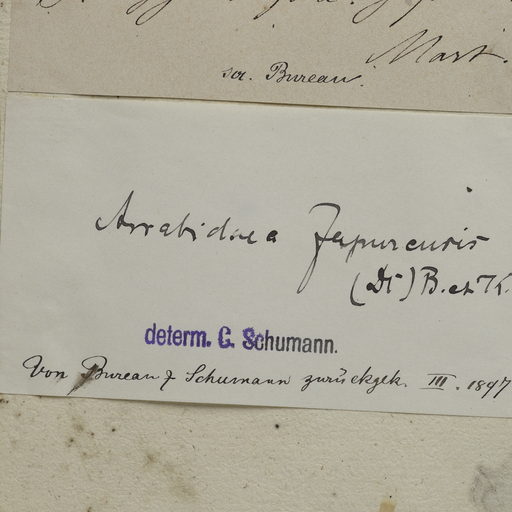 Mart.
scr. Bureau.
Arrabidaea Japurensis
(DC) B. et K.
determ. C. Schumann.
Von Bureau & Schumann zurückgek. III. 1897